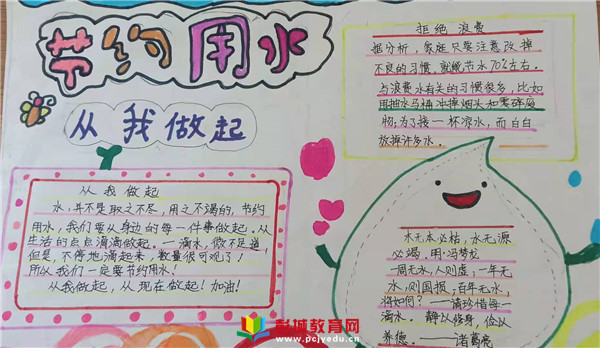 节约用水
从我做起
拒绝浪费
据分析，家庭只要注意改掉
不良的习惯，就能节水70%左右。
与浪费水有关的习惯很多，比如
用抽水马桶冲掉烟头和零碎废
物；为了接一杯凉水，而白白
放掉许多水。
从我做起
水，并不是取之不尽，用之不竭的，节约
用水，我们要从身边的每一件事做起。从
生活的点点滴滴做起。一滴水，微不足道
但是，不停地滴起来，数量很可观了！
所以我们一定要节约用水！
从我做起，从现在做起！加油！
木无本必枯，水无源
必竭，明·冯梦龙
一周无水，人则虚；一年无
水，则国损；百年无水，
将如何？——请珍惜每一
滴水。 静以修身，俭以
养德。 ——诸葛亮
彭城教育网
www.pcjyedu.cn